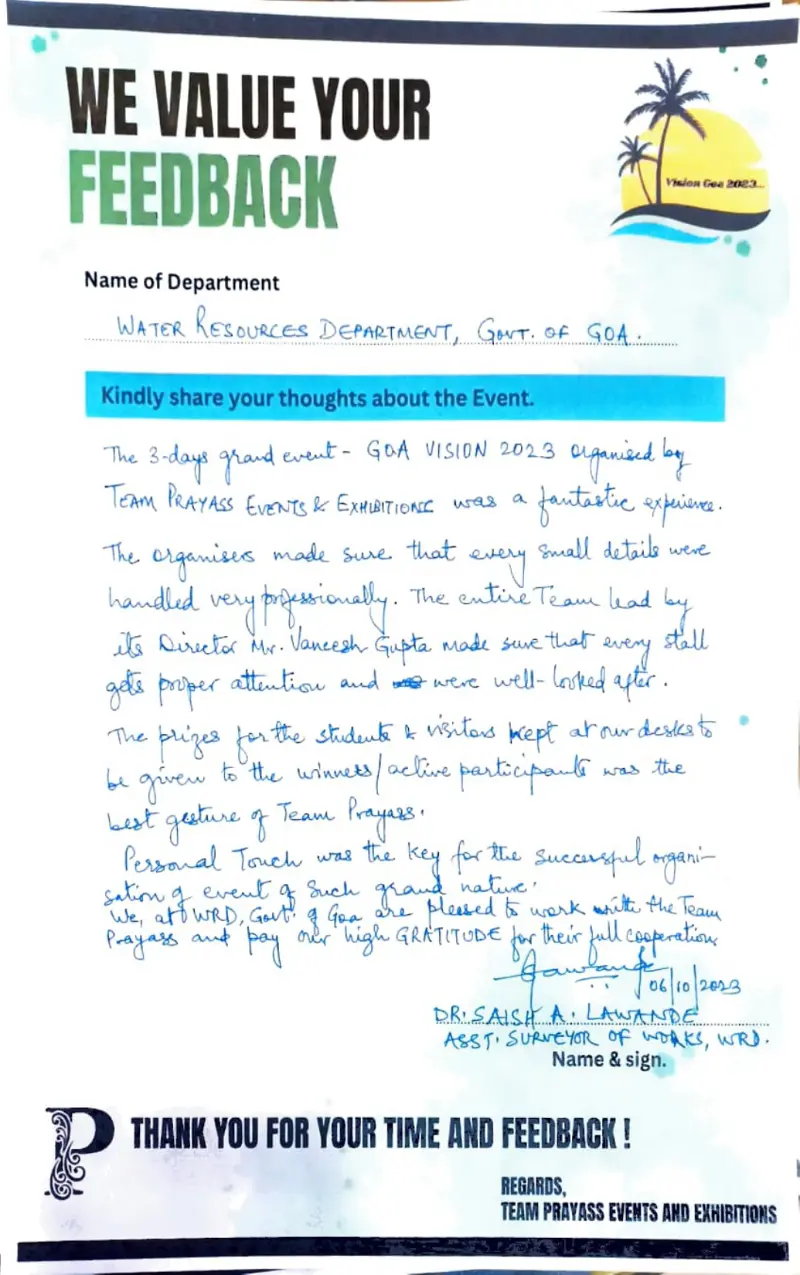 WE VALUE YOUR
FEEDBACK
Vision Goa 2023...
Name of Department
WATER RESOURCES DEPARTMENT, GOVT. OF GOA.
Kindly share your thoughts about the Event.
The 3-days grand event - GOA VISION 2023 organised by
TEAM PRAYASS EVENTS & EXHIBITIONS was a fantastic experience.
The organisers made sure that every small details were
handled very professionally. The entire Team lead by
its Director Mr. Vaneesh Gupta made sure that every stall
gets proper attention and were well-looked after.
The prizes for the students & visitors kept at our desks to
be given to the winners/active participants was the
best gesture of Team Prayass.
Personal Touch was the key for the successful organi-
sation of event of such grand nature.
We, at WRD, Govt. of Goa are pleased to work with the Team
Prayass and pay our high GRATITUDE for their full cooperation
06/10/2023
DR. SAISH A. LAWANDE
ASST. SURVEYOR OF WORKS, WRD.
Name & sign.
P THANK YOU FOR YOUR TIME AND FEEDBACK !
REGARDS,
TEAM PRAYASS EVENTS AND EXHIBITIONS